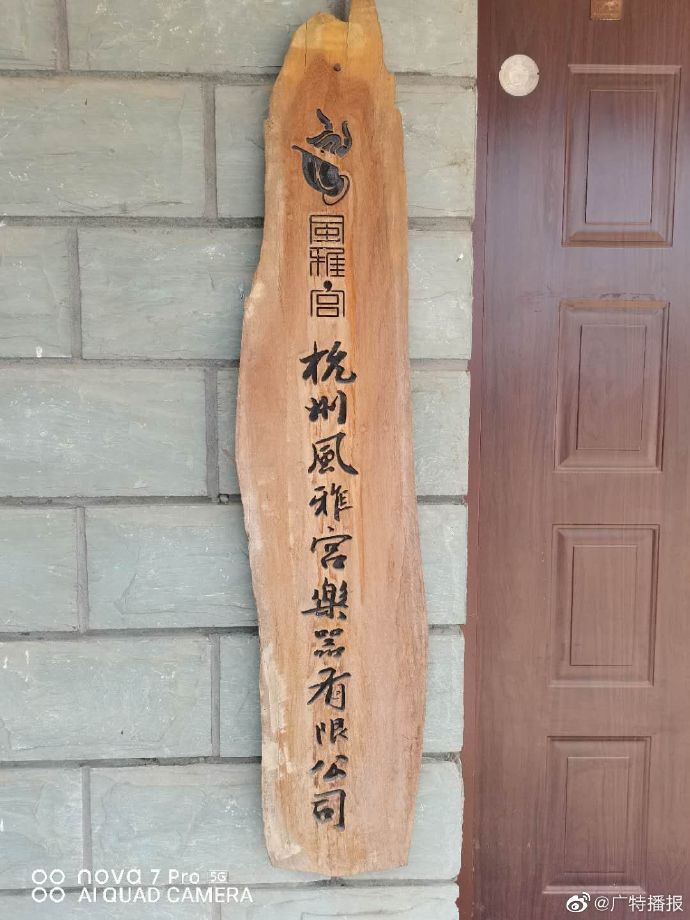 風雅宫
杭州風雅宫樂器有限公司
nova 7 Pro 5G
AI QUAD CAMERA
@广特播报